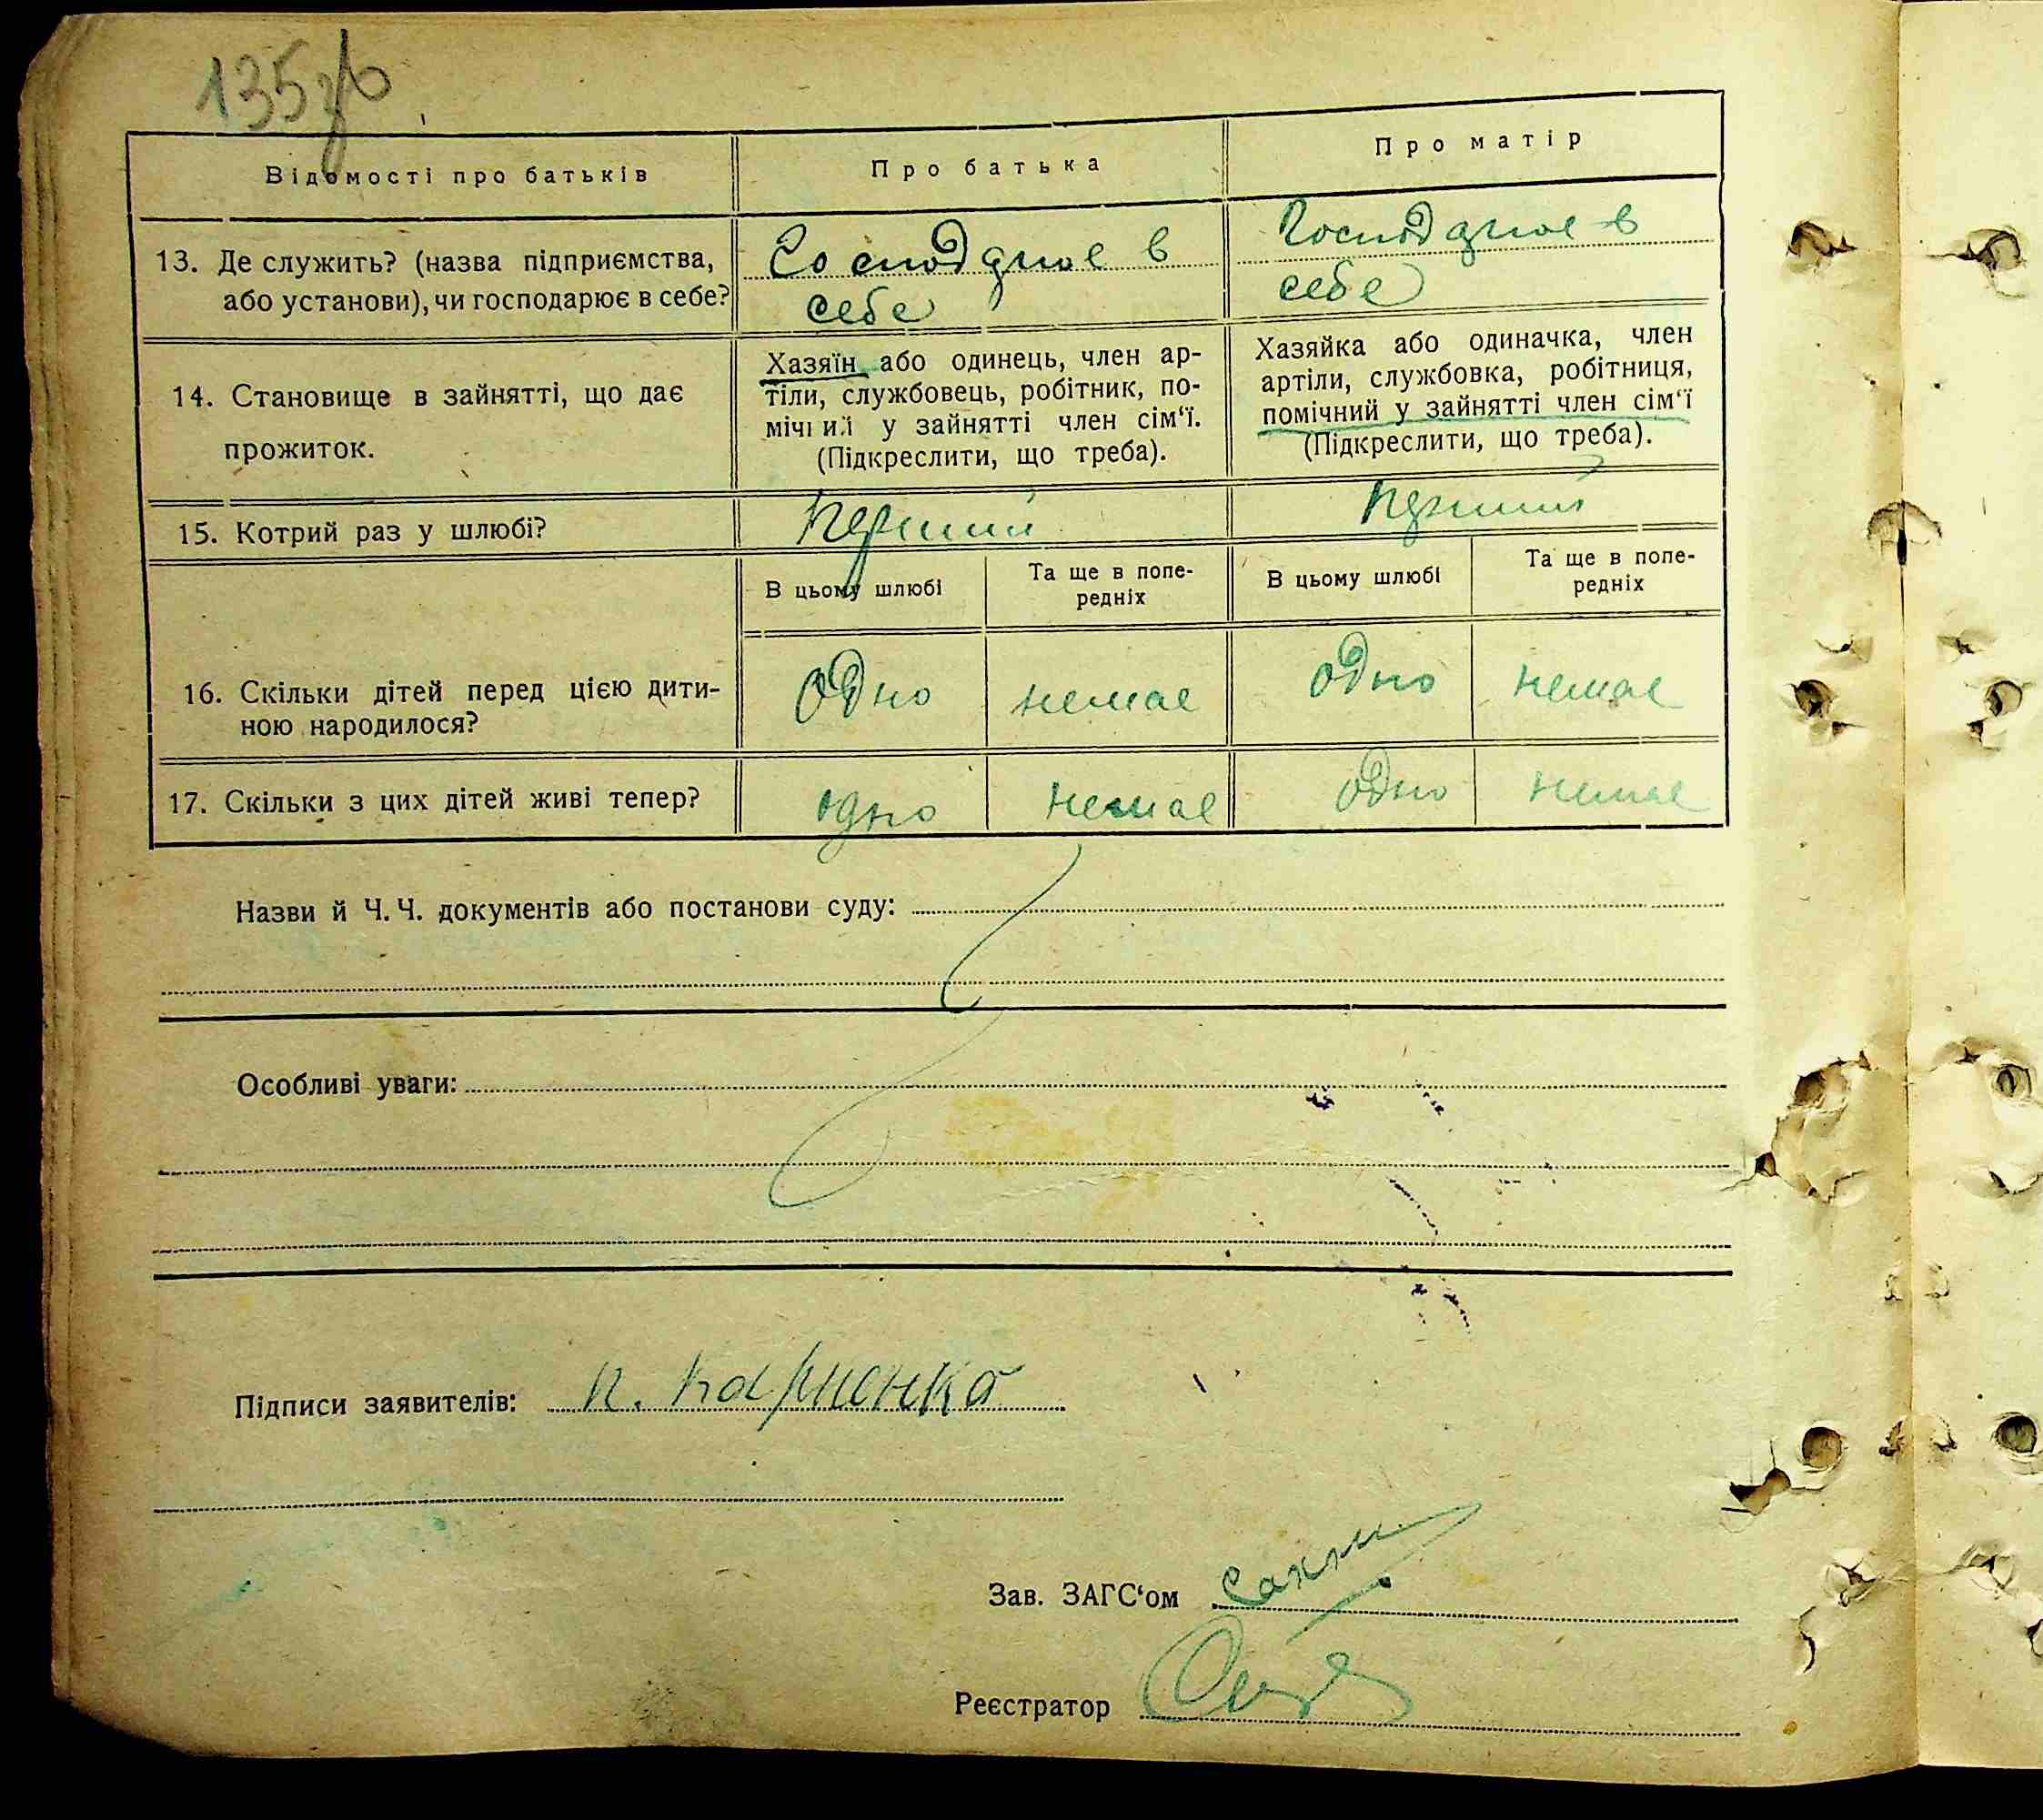 135 зв
Відомості про батьків
Про батька
Про матір
13. Де служить? (назва підприємства,
або установи), чи господарює в себе?
Господрює в
себе
Господрює в
себе
14. Становище в зайнятті, що дає
прожиток.
Хазяїн або одинець, член ар-
тіли, службовець, робітник, по-
мічний у зайнятті член сім‘ї.
(Підкреслити, що треба).
Хазяйка або одиначка, член
артіли, службовка, робітниця,
помічний у зайнятті член сім‘ї
(Підкреслити, що треба).
15. Котрий раз у шлюбі?
Перший
Перший
В цьому шлюбі
Та ще в попе-
редніх
В цьому шлюбі
Та ще в попе-
редніх
16. Скільки дітей перед цією дити-
ною народилося?
одно
немає
одно
немає
17. Скільки з цих дітей живі тепер?
одно
немає
одно
немає
Назви й Ч. Ч. документів або постанови суду:
Особливі уваги:
Підписи заявителів:
Зав. ЗАГС‘ом
Реєстратор